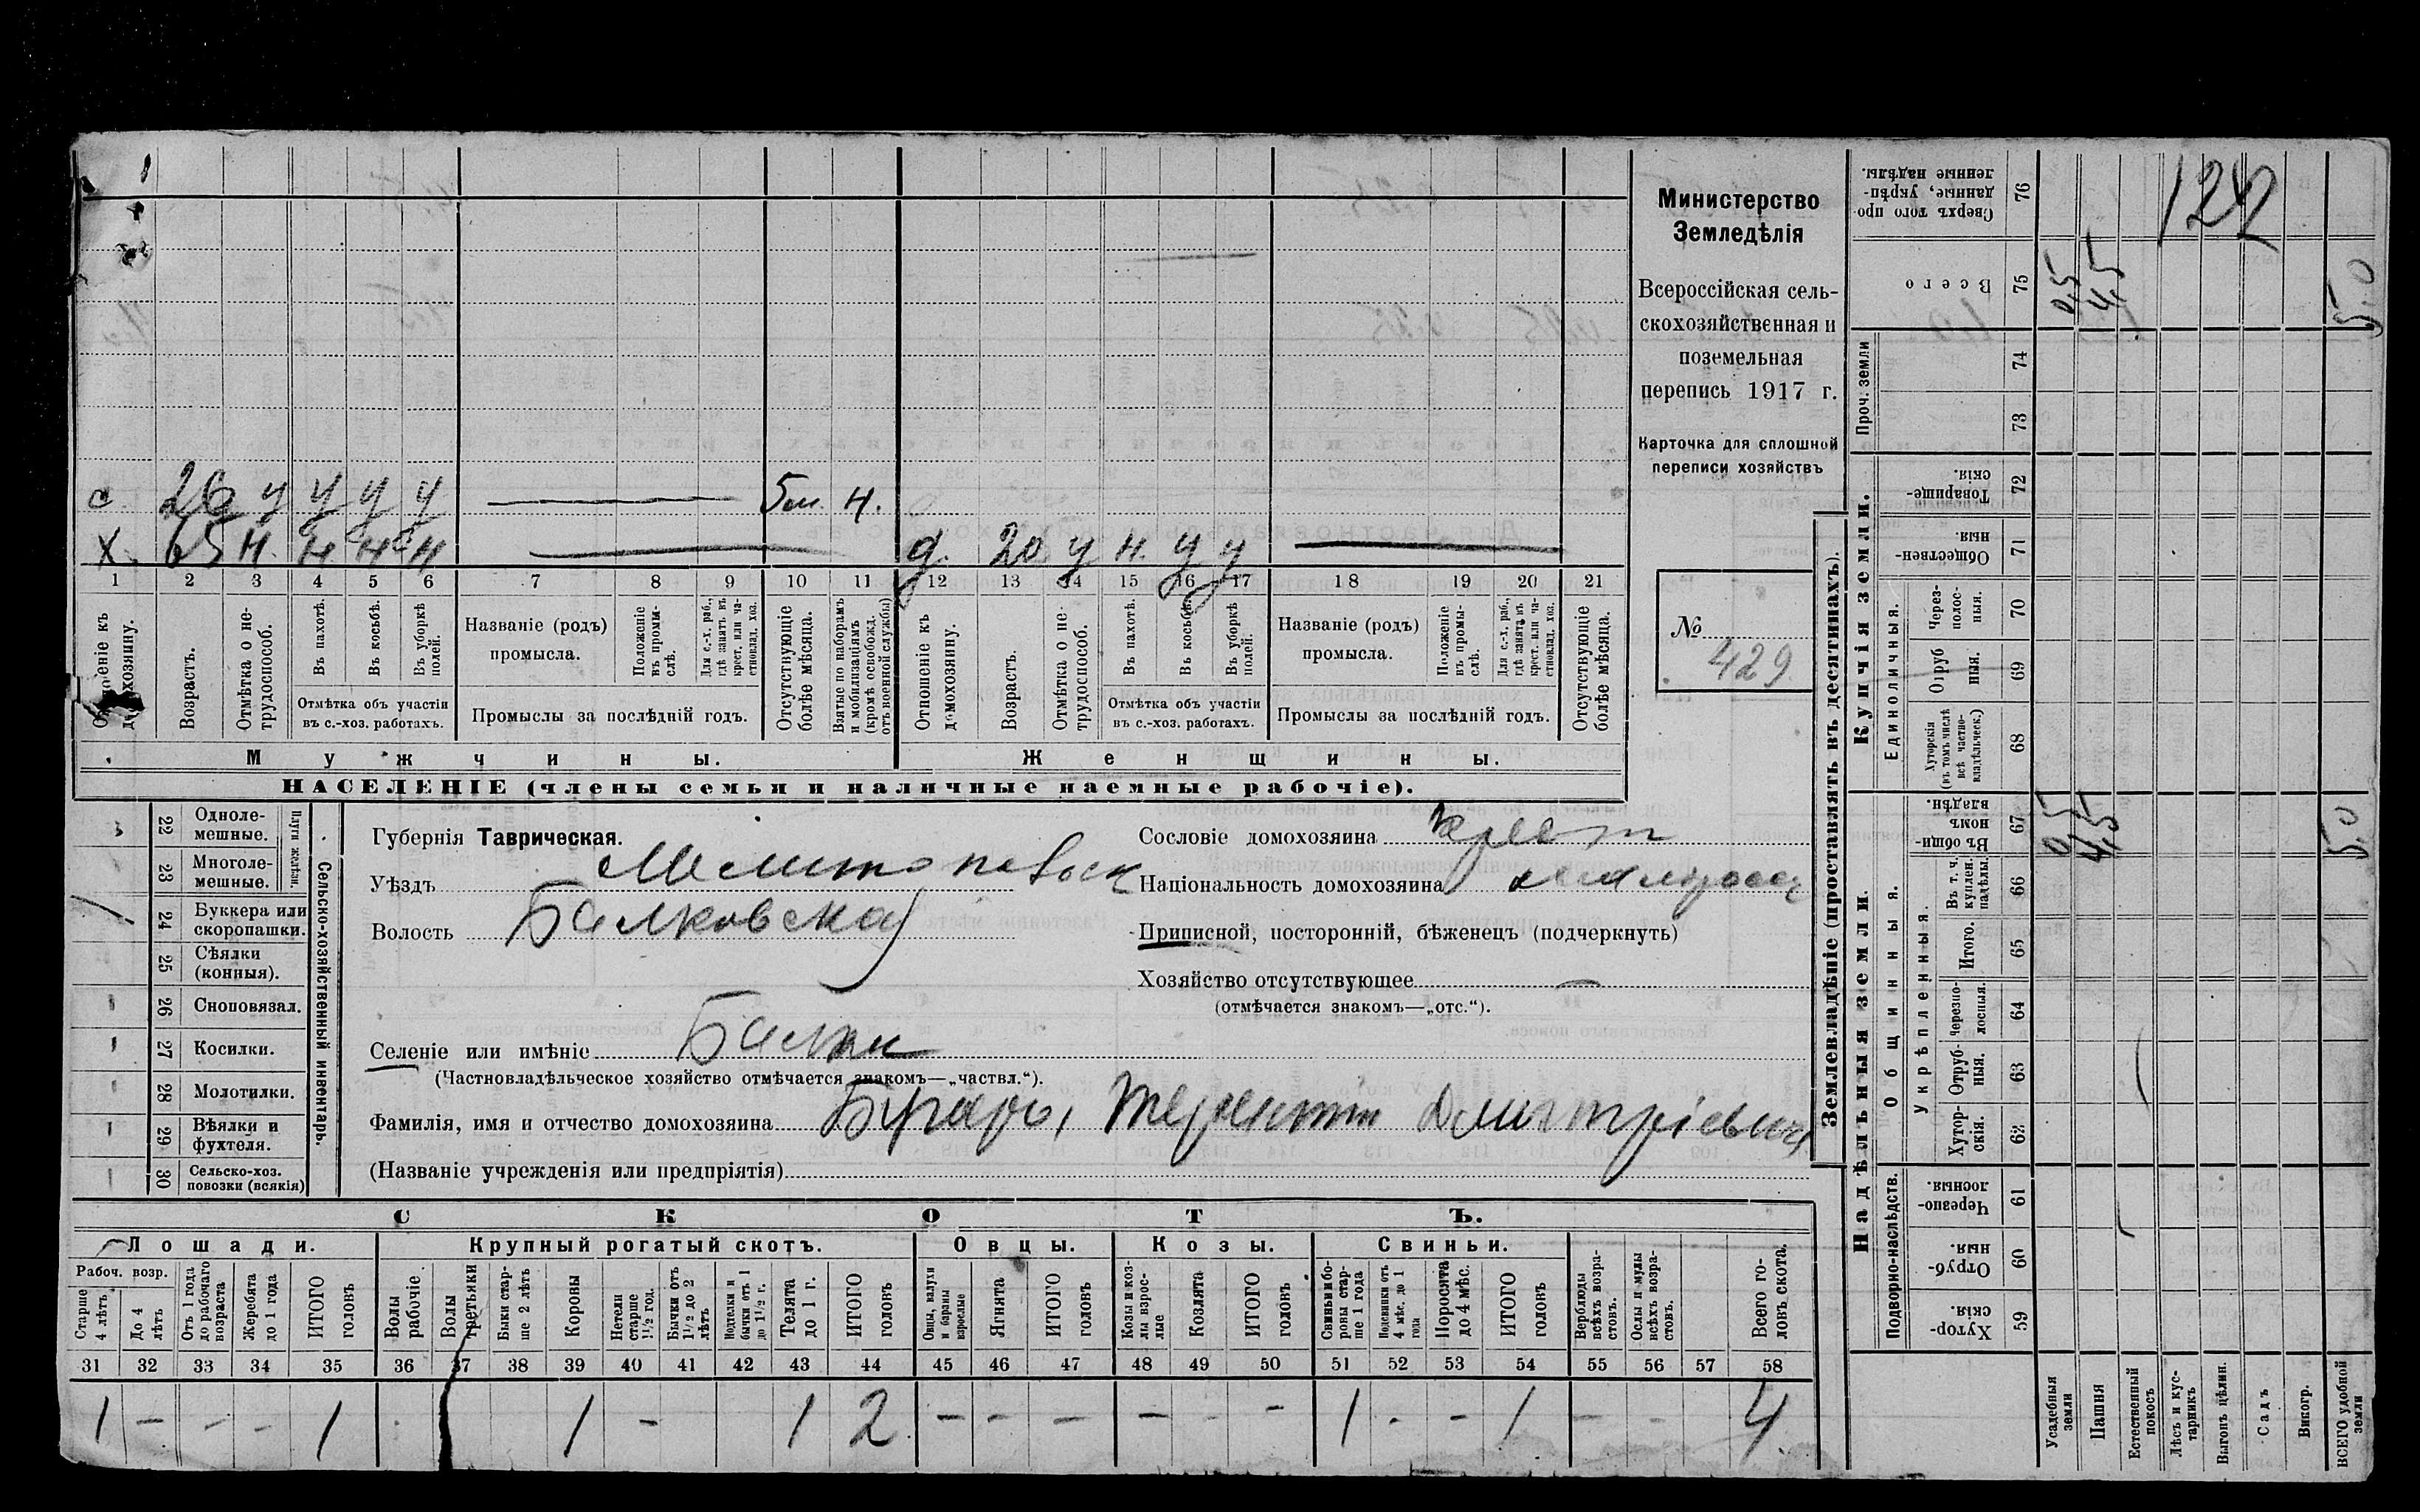 с. 26 у у у у 5 м. н.
х. 65 н. н н н д. 20 у н. у у
1 2 3 4 5 6 7 8 9 10 11 12 13 14 15 16 17 18 19 20 21
Возрастъ.
Отмѣтка о не-
трудоспособ.
Въ пахотѣ.
Въ косьбѣ.
Въ уборкѣ
полей.
Отмѣтка объ участіи
въ с.-хоз. работахъ.
Названіе (родъ)
промысла.
Положеніе
въ промы-
слѣ.
Для с.-х. раб.,
гдѣ занятъ въ
крест. или ча-
стновлад. хоз.
Промыслы за послѣдній годъ.
Отсутствующіе
болѣе мѣсяца.
Взятые по наборамъ
и мобилизаціямъ
(кромѣ освобожд.
отъ военной службы)
Отношеніе къ
домохозяину.
Возрастъ.
Отмѣтка о не-
трудоспособ.
Въ пахотѣ.
Въ косьбѣ.
Въ уборкѣ
полей.
Отмѣтка объ участіи
въ с.-хоз. работахъ.
Названіе (родъ)
промысла.
Положеніе
въ промы-
слѣ.
Для с.-х. раб.,
гдѣ занята, въ
крест. или ча-
стновлад. хоз.
Промыслы за послѣдній годъ.
Отсутствующіе
болѣе мѣсяца.
Мужчины. Женщины.
НАСЕЛЕНІЕ (члены семьи и наличные наемные рабочіе).
Министерство
Земледѣлія
Всероссійская сель-
скохозяйственная и
поземельная
перепись 1917 г.
Карточка для сплошной
переписи хозяйствъ
№ 429
22 Одноле-
мешные.
23 Многоле-
мешные.
Плуги желѣзн.
24 Буккера или
скоропашки.
25 Сѣялки
(конныя).
26 Сноповязал.
27 Косилки.
28 Молотилки.
29 Вѣялки и
фухтеля.
30 Сельско-хоз.
повозки (всякія)
Сельско-хозяйственный инвентарь.
Губернія Таврическая.
Уѣздъ Мелитопольск
Волость Балковская
Селеніе или имѣніе Балки
(Частновладѣльческое хозяйство отмѣчается знакомъ—„частвл.“).
Фамилія, имя и отчество домохозяина Терентій Дмитріевич
(Названіе учрежденія или предпріятія)
Сословіе домохозяина крест
Національность домохозяина малоросс
Приписной, посторонній, бѣженецъ (подчеркнуть)
Хозяйство отсутствующее —
(отмѣчается знакомъ—„отс.“).
СКОТЪ.
Лошади. Крупный рогатый скотъ. Овцы. Козы. Свиньи.
Рабоч. возр.
Старше
4 лѣтъ
До 4
лѣтъ
Отъ 1 года
до рабочаго
возраста
Жеребята
до 1 года
ИТОГО
головъ
Волы
рабочіе
Волы
третьяки
Быки стар-
ше 2 лѣтъ
Коровы
Нетели
старше
1½ год.
Бычки отъ
1½ до 2
лѣтъ
Подтелки и
бычки отъ 1
до 1½ г.
Телята
до 1 г.
ИТОГО
головъ
Овцы, валухи
и бараны
взрослые
Ягнята
ИТОГО
головъ
Козы и коз-
лы взрос-
лые
Козлята
ИТОГО
головъ
Свиньи и бо-
ровы стар-
ше 1 года
Подсвинки отъ
4 мѣс. до 1
года
Поросята
до 4 мѣс.
ИТОГО
головъ
Верблюды
всѣхъ возра-
стовъ.
Ослы и мулы
всѣхъ возра-
стовъ.
Всего го-
ловъ скота.
31 32 33 34 35 36 37 38 39 40 41 42 43 44 45 46 47 48 49 50 51 52 53 54 55 56 57 58
1 — — — 1 1 — 1 2 — — — — — — 1 — — 1 — — 4
Землевладѣніе (проставлять въ десятинахъ).
Надѣльныя земли. Купчія земли.
Сверхъ того про-
данные, укрѣп-
ленные надѣлы. 76
Всего 75 0,5 4,5 5,0
Проч. земли
74
73
Товарище-
скія. 72
Обществен-
ныя. 71
Единоличныя.
Через-
полос-
ныя. 70
Отруб
ныя. 69
Хуторскія
(въ томъ числѣ
всѣ частно-
владѣльческ.) 68
Общинныя.
Въ общин-
номъ
владѣн. 67 0,5 4,5 5,0
Въ т. ч.
куплен.
надѣлы. 66
Укрѣпленныя.
Итого. 65
Черезпо-
лосныя. 64
Отруб-
ныя. 63
Хутор-
скія. 62
Подворно-наслѣдств.
Черезпо-
лосныя. 61
Отруб-
ныя. 60
Хутор-
скія. 59
Усадебныя
земли
Пашня
Естественный
покосъ
Лѣсъ и кус-
тарникъ
Выгонъ цѣлин.
Садъ
Виногр.
ВСЕГО удобной
земли